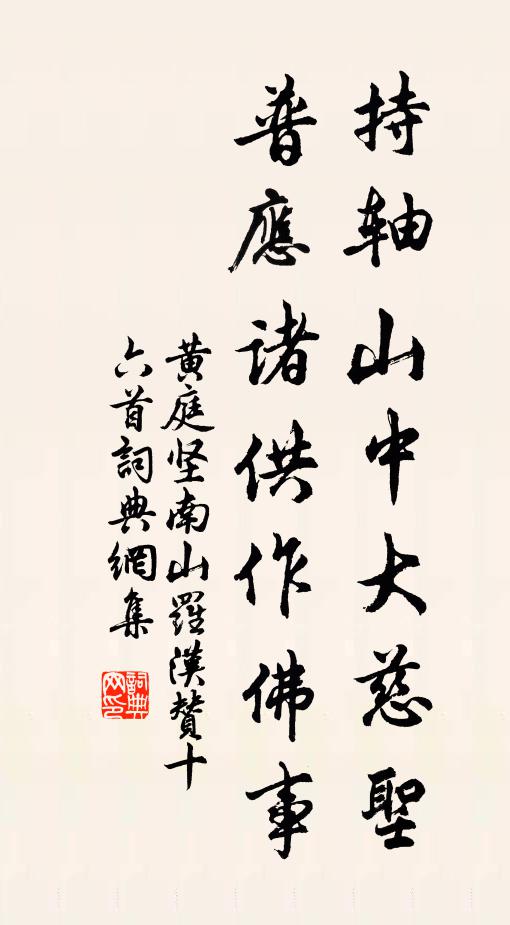 持軸山中大慈聖
普應諸供作佛事
黄庭坚南山羅漢赞十
六首詞典網集
詞典
网印